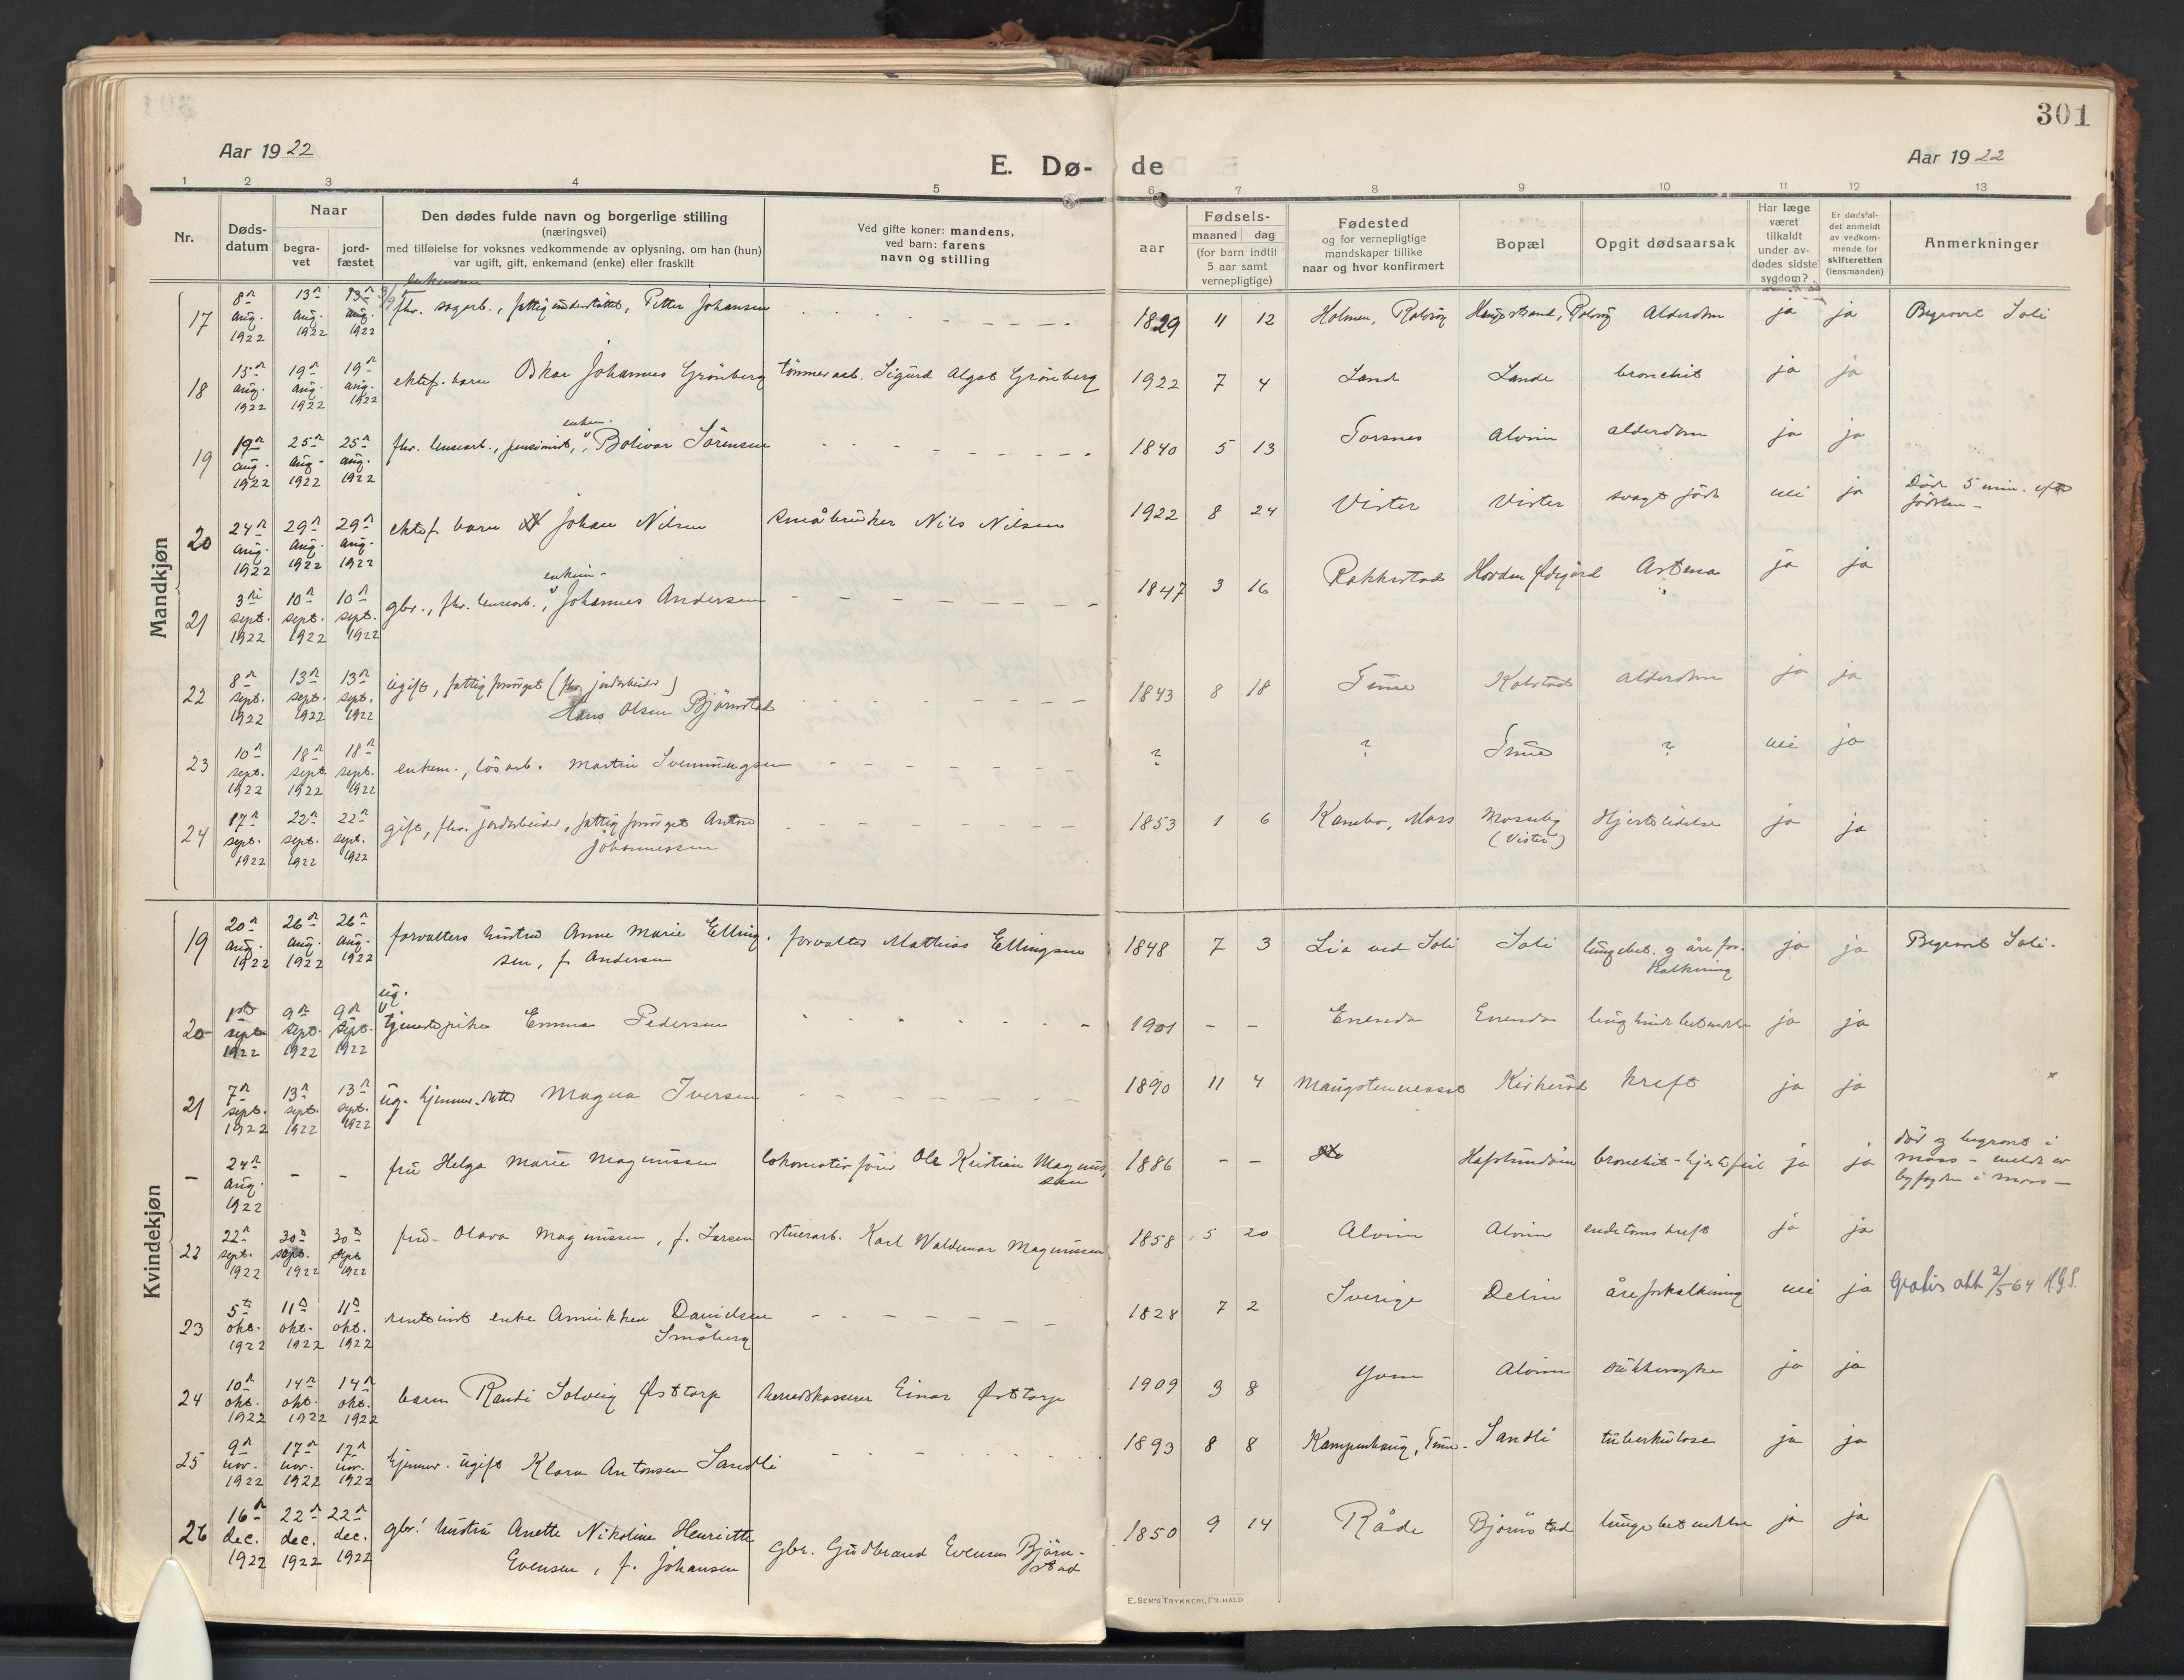 301
Aar 1922
E. Dø-
de
Aar 1922
1 2 3 4 5 6 7 8 9 10 11 12 13
Nr.
Døds-
datum
Naar
begra-
vet
jord-
fæstet
Den dødes fulde navn og borgerlige stilling
(næringsvei)
med tilføielse for voksnes vedkommende av oplysning, om han (hun)
var ugift, gift, enkemand (enke) eller fraskilt
Ved gifte koner: mandens,
ved barn: farens
navn og stilling
aar
Fødsels-
maaned dag
(for barn indtil
5 aar samt
vernepligtige)
Fødested
og for vernepligtige
mandskaper tillike
naar og hvor konfirmert
Bopæl
Opgit dødsaarsak
Har læge
været
tilkaldt
under av-
dødes sidste
sygdom?
Er dødsfal-
det anmeldt
av vedkom-
mende for
skifteretten
(lensmanden)
Anmerkninger
Mandkjøn
17 8n aug. 1922 13n aug. 1922 13n aug. 1922 fhv. sagarb., fattigunderstøttet, Petter Johansen 1829 11 12 Holmen, Rolvsøy Alderdom ja ja Begravet Soli
18 15n aug. 1922 19n aug. 1922 19n aug. 1922 ektef. barn Oskar Johannes Grönberg tömmerarb. Sigurd Algot Grönberg 1922 7 4 Lande Lande bronchit ja ja
19 19n aug. 1922 25n aug. 1922 25n aug. 1922 enkem.
fhv. lensearb., pensionist, Bolivar Sörensen 1840 5 13 Torsnes Alvim alderdom ja ja
20 24n aug. 1922 29n aug. 1922 29n aug. 1922 ektef. barn Johan Nilsen småbruker Nils Nilsen 1922 8 24 Vister Vister svagt født nei ja Døde 5 min. efter
fødselen -
21 3di sept. 1922 10n sept. 1922 10n sept. 1922 enkem.
gbr., fhv. lensearb., Johannes Andersen 1847 3 16 Rakkestad Astma ja ja
22 8n sept. 1922 13n sept. 1922 13n sept. 1922 ugift, fattigforsörget (fhv. jordarbeider)
Hans Olsen Björnstad 1843 8 18 Tune Kolstad alderdom ja ja
23 10n sept. 1922 18n sept. 1922 18n sept. 1922 enkem., lösarb. Martin Svenningsen ? ? Tune ? nei ja
24 17n sept. 1922 22n sept. 1922 22n sept. 1922 gift, fhv. jordarbeider, fattigforsörget Anton
Johannessen 1853 1 6 Kambo, Moss Mosseby
(Vister) Hjertelidelse ja ja
Kvindekjøn
19 20n aug. 1922 26n aug. 1922 26n aug. 1922 forvalters hustru Anne Marie Elling-
sen, f. Andersen forvalter Mathias Ellingsen 1848 7 3 Lia ved Soli Soli lungebet. og årefor-
kalkning ja ja Begravet Soli.
20 1ste sept 1922 9n sept. 1922 9n sept. 1922 ug.
tjenestepike Emma Pedersen 1901 - - Enenda Enenda lunghindebetændelse ja ja
21 7n sept. 1922 13n sept. 1922 13n sept. 1922 ug. hjemmev. datter Magna Iversen 1890 11 4 Kirkerød kreft ja ja
- 24n aug. 1922 - - fru Helga Marie Magnussen lokomotivfører Ole Kristian Magnus-
sen 1886 - - Hafslundsøen bronchit - hjertefeil ja ja död og begravet i
Moss - meldt av
byfogden i Moss -
22 22n sept. 1922 30n sept. 1922 30n sept 1922 fru Olava Magnussen, f. Larsen stuerarb. Karl Waldemar Magnussen 1858 5 20 Alvim Alvim endetarmskreft ja ja
23 5te okt. 1922 11n okt. 1922 11n okt. 1922 rentenist enke Annikken Davidsen
Småberg 1828 7 2 Sverige Delin åreforkalkning nei ja Gratis att 2/5 64 K.G.S.
24 10n okt. 1922 14n okt. 1922 14n okt. 1922 barn Randi Solveig Østtorp herredskasserer Einar Østtorp 1909 3 8 Alvim sukkersyke ja ja
25 9n nov. 1922 17n nov. 1922 17n nov. 1922 hjemmev. ugift Klara Antonsen Sandli 1893 8 8 Kampenhaug, Tune. Sandli tuberkulose ja ja
26 16n dec. 1922 22n dec. 1922 22n dec. 1922 gbr. hustru Anette Nikoline Henriette
Evensen, f. Johansen gbr. Gudbrand Evensen Björn-
stad 1850 9 14 Råde Björnstad lungebetændelse ja ja
E. SEM'S TRYKKERI, FR.HALD